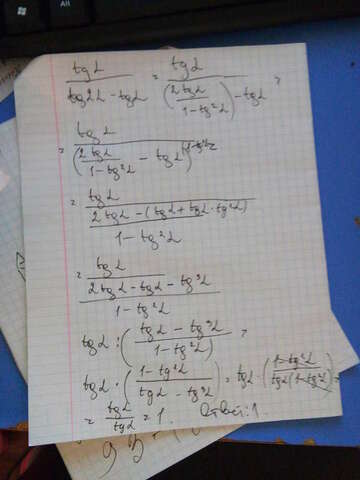 Alt
tgα / (tg2α - tgα) = tgα / ((2tgα / (1-tg²α)) - tgα) =
= tgα / ((2tgα / (1-tg²α)) - tgα)
= tgα / ((2tgα - (tgα + tgα · tg²α)) / (1-tg²α))
= tgα / ((2tgα - tgα - tg³α) / (1-tg²α))
tgα : ((tgα - tg³α) / (1-tg²α)) =
tgα · ((1-tg²α) / (tgα - tg³α)) = tgα · ((1-tg²α) / (tgα(1-tg²α))) =
= tgα / tgα = 1. Ответ: 1.